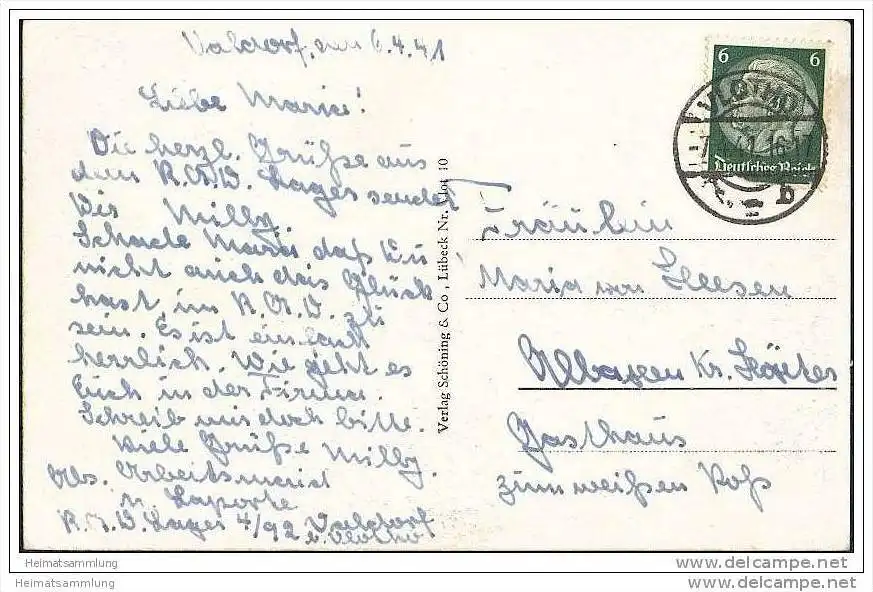 Valdorf, den 6.4.41
Liebe Maria!
Die herzl. Grüße aus
dem R.A.D. Lager sendet
Dir Milly.
Schade Maria daß Du
nicht auch das Glück
hast, im R.A.D. zu
sein. Es ist einfach
herrlich. Wie geht es
Euch in der Firma.
Schreib mir doch bitte.
Viele Grüße Milly.
Abs. Arbeitsmaid
M. Laporte
R.A.D. Lager 4/92 Valdorf
b. Vlotho
Verlag Schöning & Co., Lübeck Nr. Vlot 10
6 6
Deutsches Reich
VLOTHO
b
Fräulein
Maria von Heesen
Albaxen Kr. Höxter
Gasthaus
zum weißen Roß
Heimatsammlung
www.delcampe.net
Heimatsammlung
www.delcampe.net